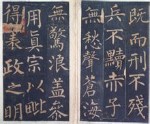 既而刑不殘
兵不黷赤子
無愁聲蒼海
無驚浪蓋叅
用眞宗以毗
得裴政之明